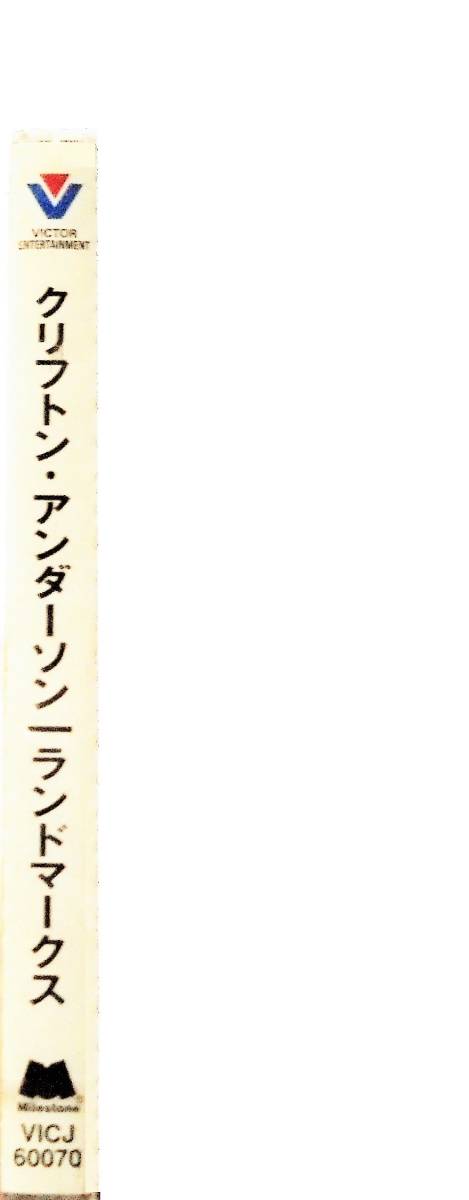 VICTOR
ENTERTAINMENT
クリフトン・アンダーソン|ランドマークス
Milestone
VICJ
60070